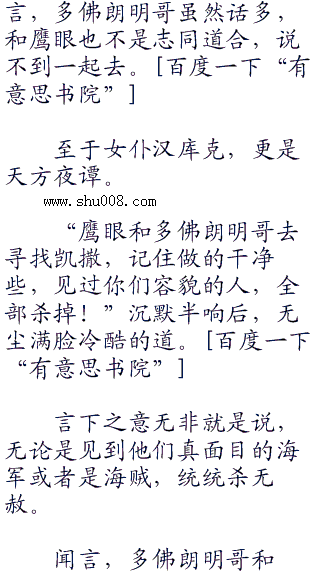 言，多佛朗明哥虽然话多，
和鹰眼也不是志同道合，说
不到一起去。[百度一下“有
意思书院”]
至于女仆汉库克，更是
天方夜谭。
www.shu008.com
“鹰眼和多佛朗明哥去
寻找凯撒，记住做的干净
些，见过你们容貌的人，全
部杀掉！”沉默半响后，无
尘满脸冷酷的道。[百度一下
“有意思书院”]
言下之意无非就是说，
无论是见到他们真面目的海
军或者是海贼，统统杀无
赦。
闻言，多佛朗明哥和